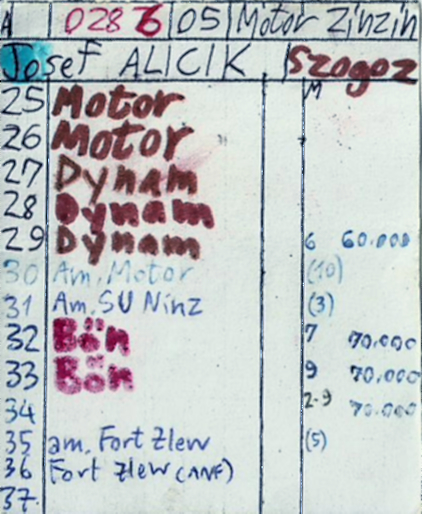 A 0286 05 Motor Zinzin
Josef ALICIK Szogoz
25 Motor M
26 Motor
27 Dynam
28 Dynam
29 Dynam 6 60.000
30 Am. Motor (10)
31 Am. SU Ninz (3)
32 Bön 7 70.000
33 Bön 9 70.000
34 2-9 70.000
35 am. Fort Zlew (5)
36 Fort Zlew (ANF)
37.